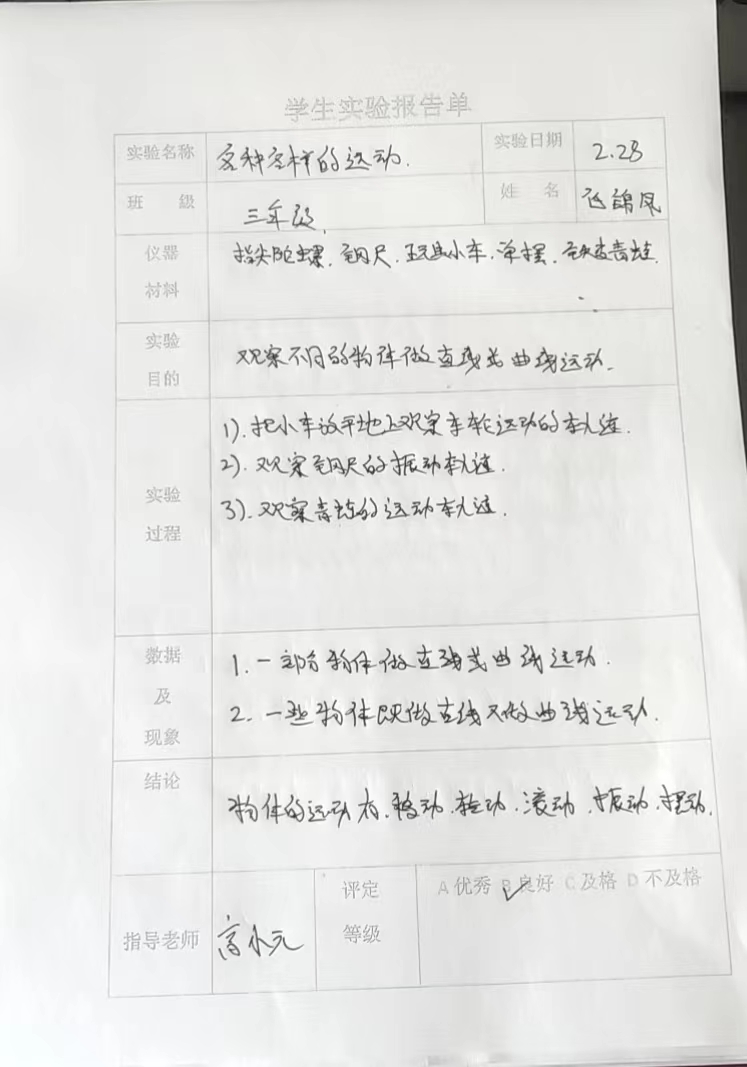 学生实验报告单
实验名称 各种各样的运动. 实验日期 2.28
班 级 三年级. 姓 名 锦凤
仪器 指尖陀螺、钢尺、玩具小车、单摆、铁皮青蛙.
材料
实验
目的 观察不同的物体做直线或曲线运动.
1).把小车放平地上观察车轮运动的轨迹.
2).观察钢尺的振动轨迹.
实验 3).观察青蛙的运动轨迹.
过程
数据 1.一部分物体做直线或曲线运动.
及 2.一些物体既做直线又做曲线运动.
现象
结论
物体的运动有.移动.转动.滚动.振动.摆动.
评定 A优秀 B良好 C及格 D不及格
指导老师 高小元 等级